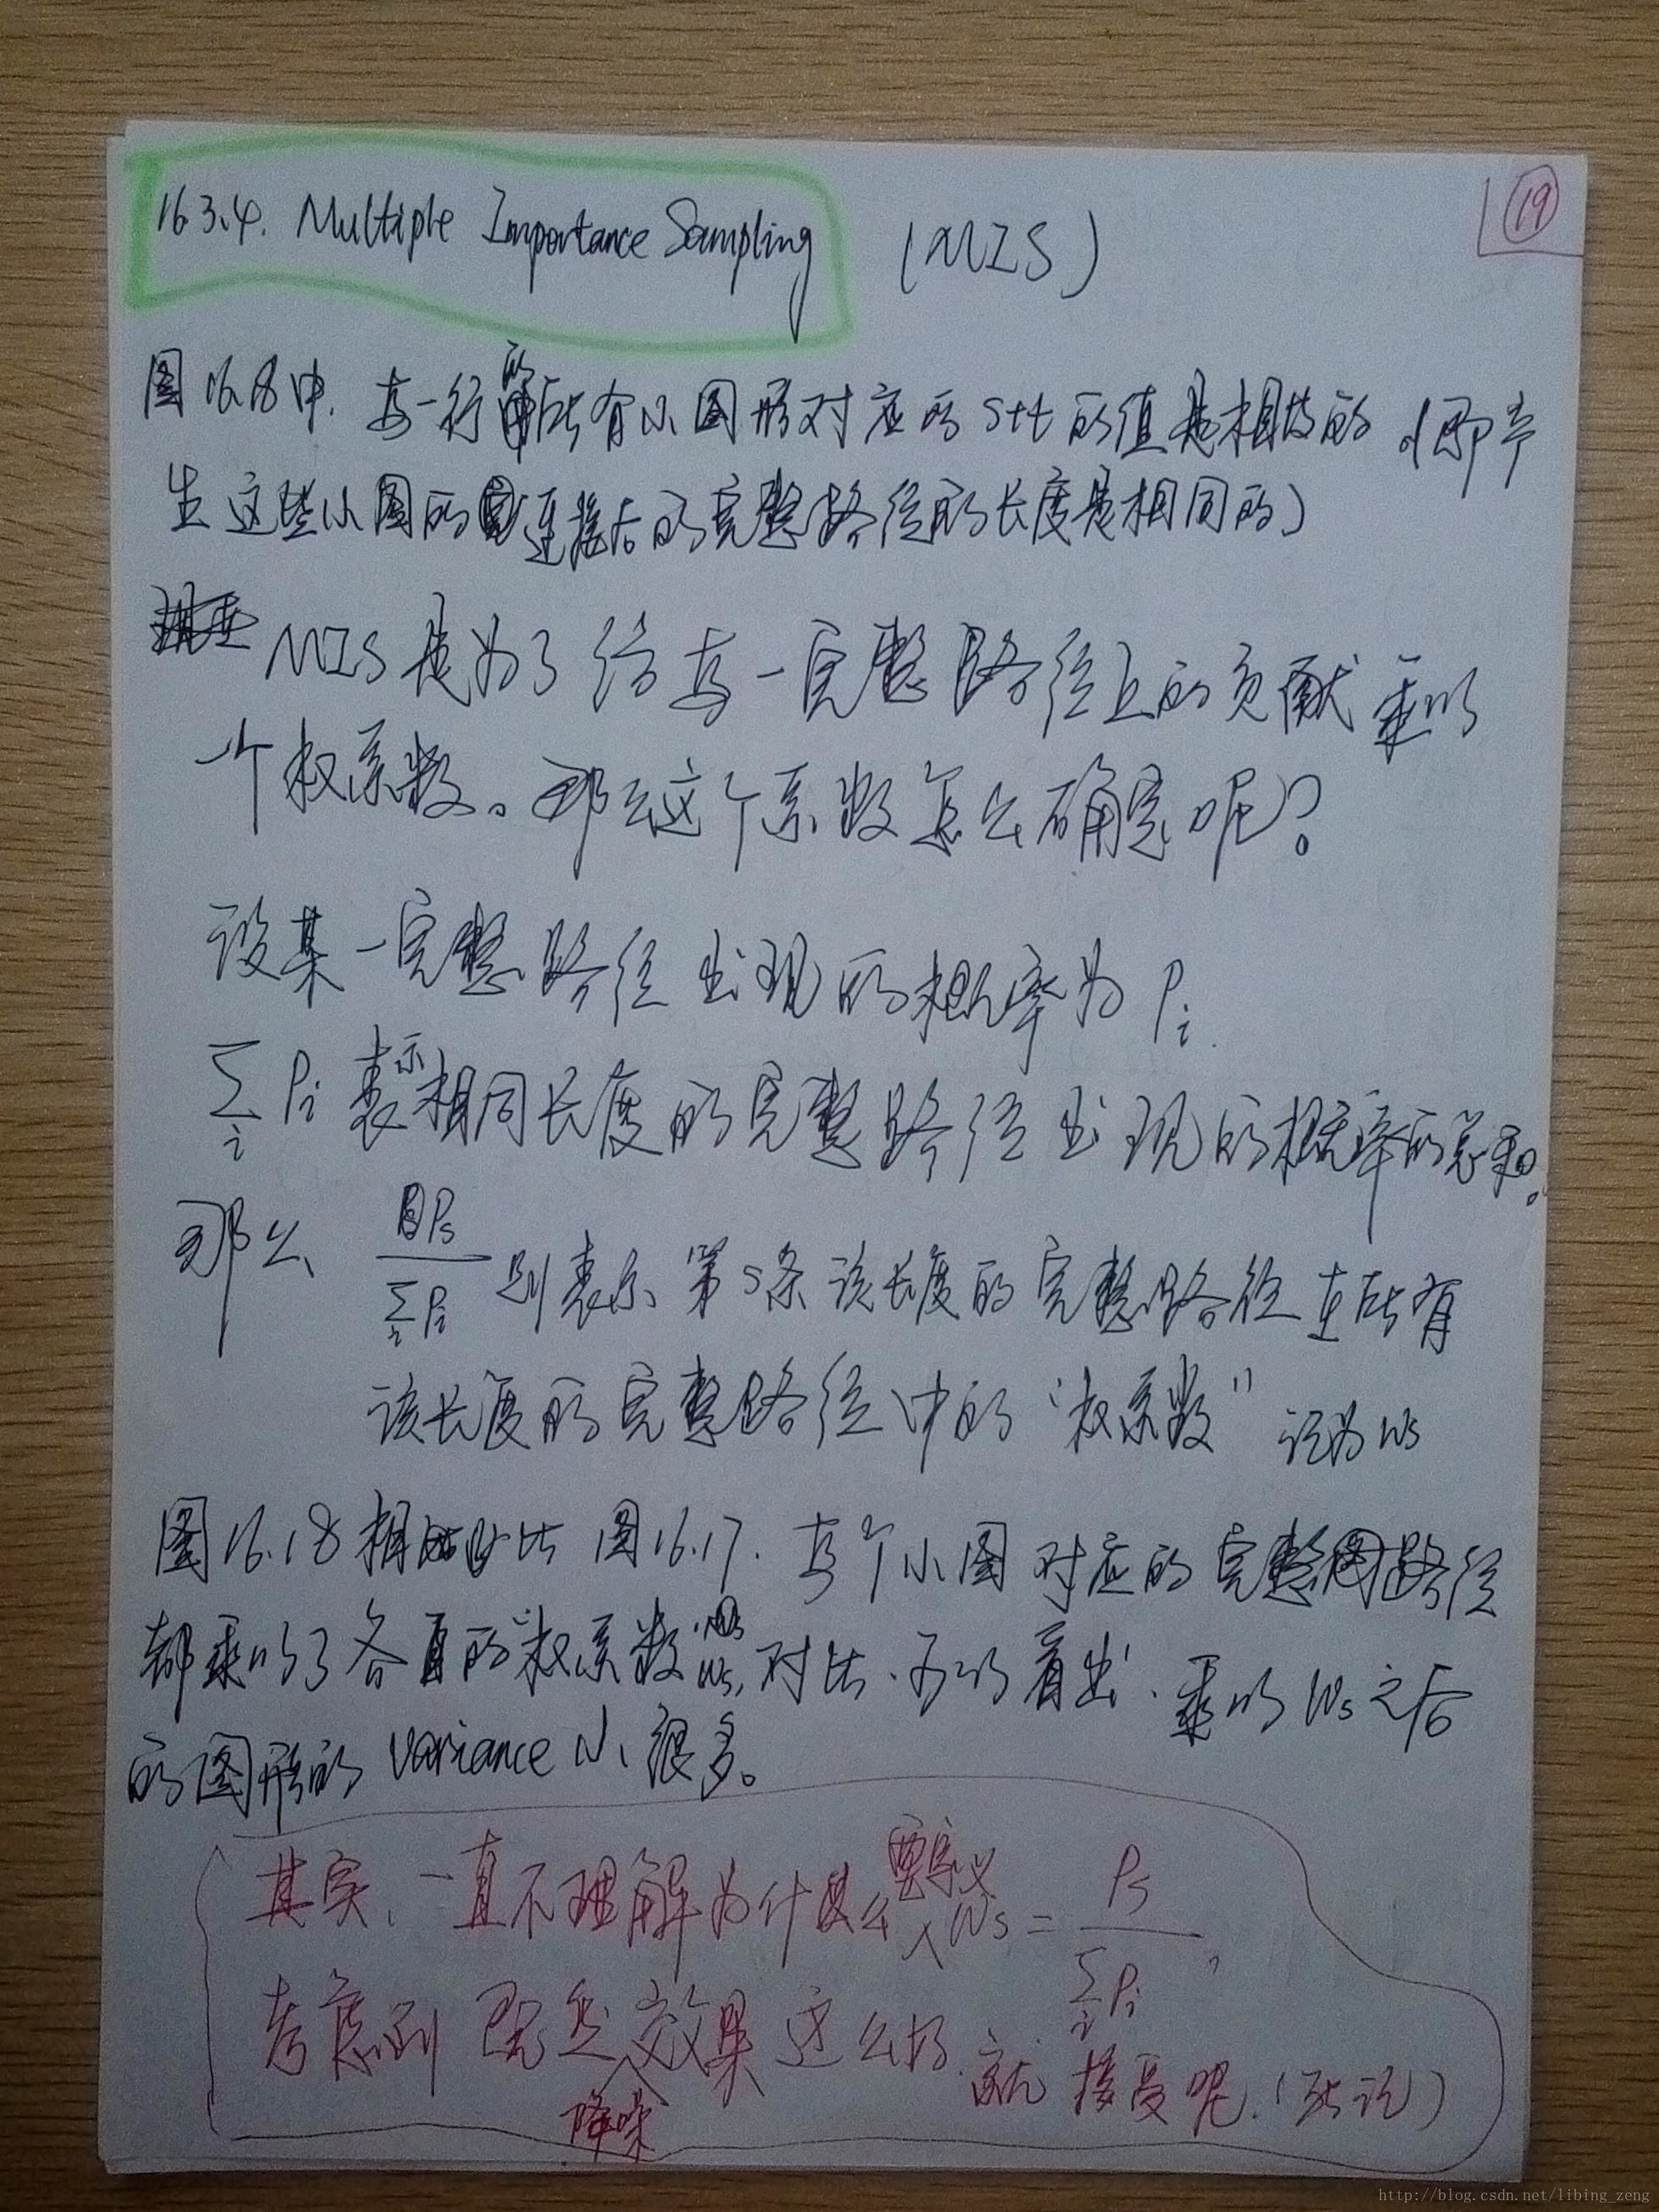 16.3.4. Multiple Importance Sampling (MIS)
19
图16.18中, 每一行的所有小图形对应的s+t的值是相等的。(即产
生这些小图的连接后的完整路径的长度是相同的)
MIS是为了给每一完整路径上的贡献乘以
个权系数。那么这个系数怎么确定呢?
设某一完整路径出现的概率为 Pi.
∑i Pi 表示相同长度的完整路径出现的概率的总和。
那么 Ps / ∑i Pi 则表示第s条该长度的完整路径在所有
该长度的完整路径中的“权系数” 记为 ws
图16.18相比 图16.17. 每个小图对应的完整路径
都乘以了各自的“权系数” ws, 对比. 可以看出. 乘以 ws之后
的图形的 variance 小很多。
其实、一直不理解为什么要定义 ws = Ps / ∑i Pi ,
考虑到 既然降噪效果这么好. 就接受呢. (死记)
http://blog.csdn.net/libing_zeng